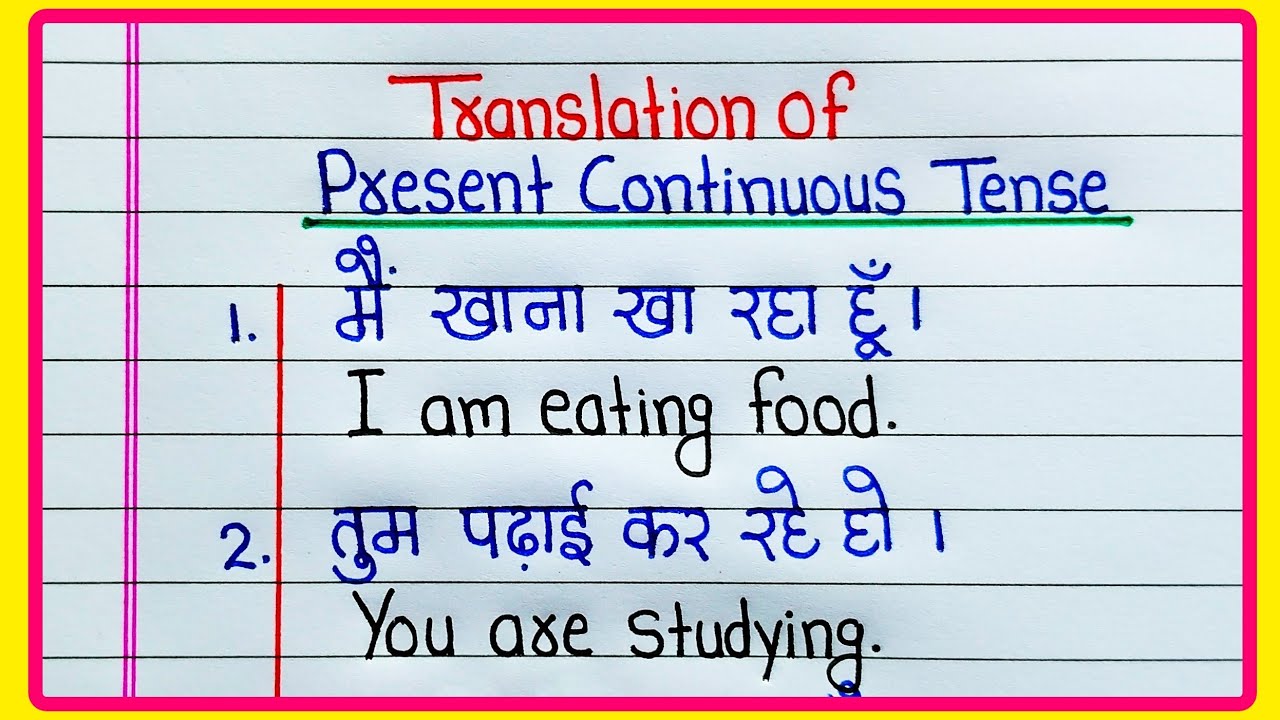 Translation of
Present Continuous Tense
1. मैं खाना खा रहा हूँ।
I am eating food.
2. तुम पढ़ाई कर रहे हो।
You are studying.